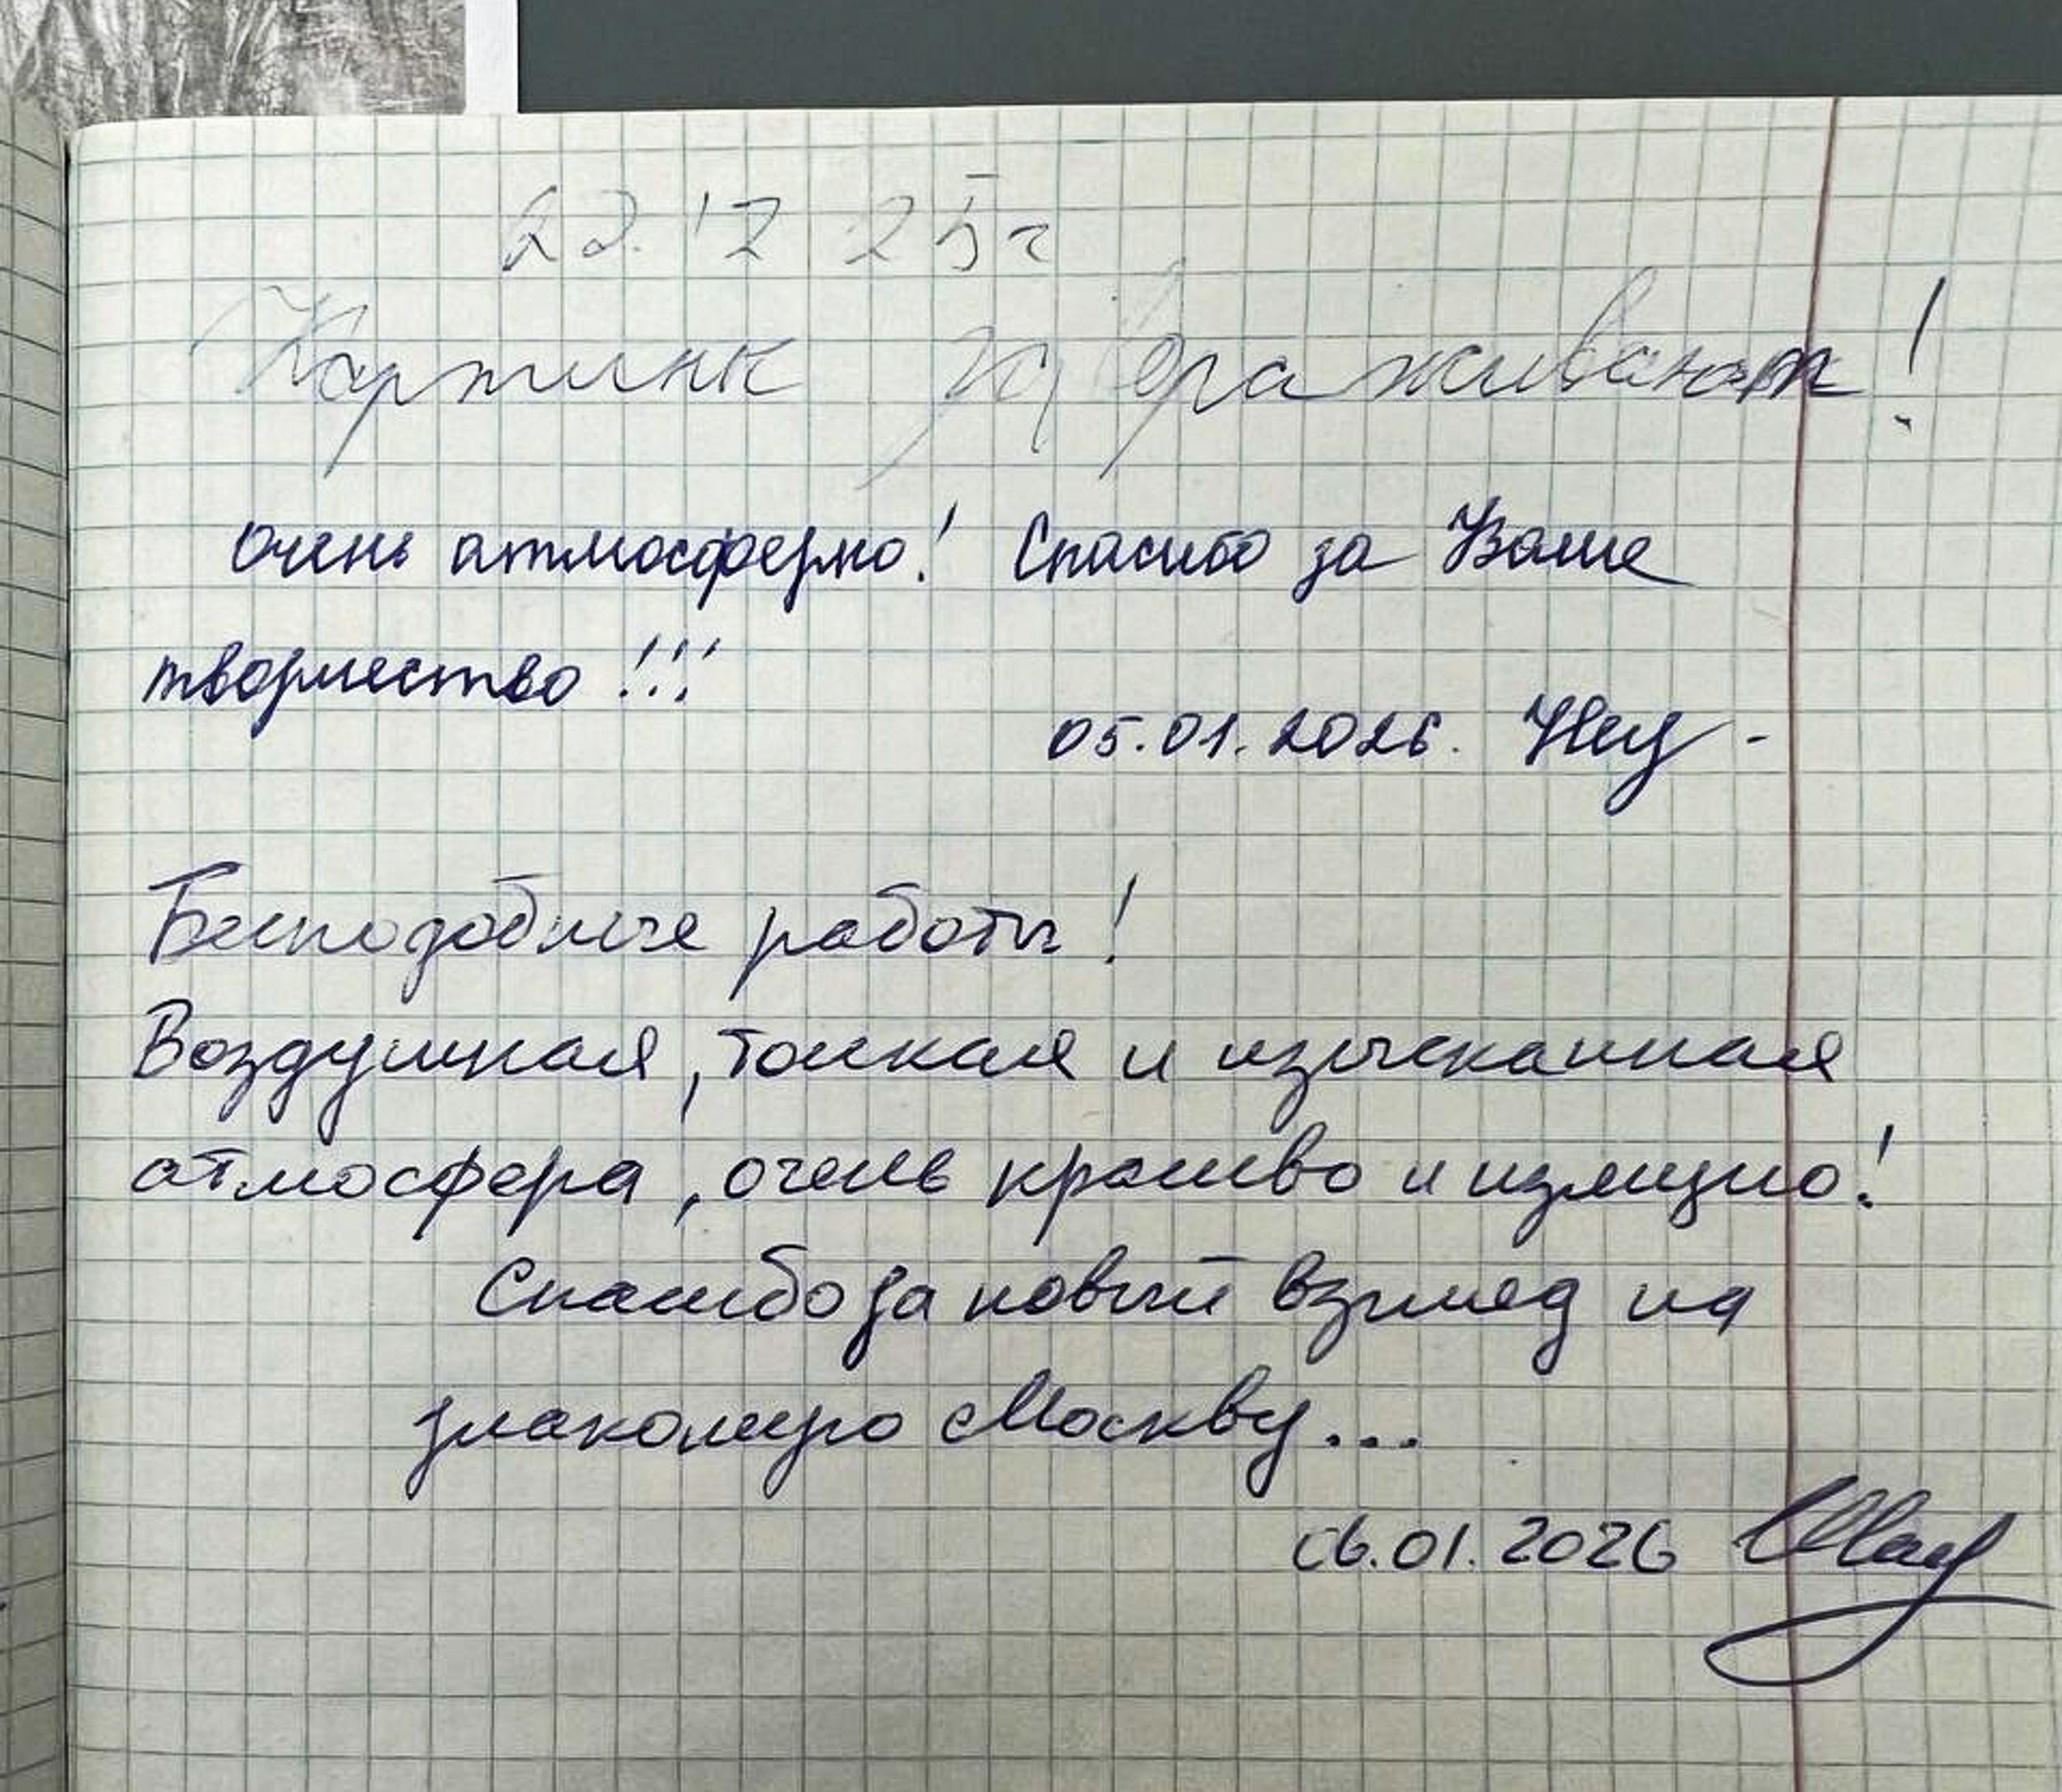 22.12 25г
Картины завораживают!
Очень атмосферно! Спасибо за Ваше
творчество!!!
05.01.2026.
Бесподобные работы!
Воздушная, тонкая и изысканная
атмосфера, очень красиво и изящно!
Спасибо за новый взгляд на
знакомую Москву...
06.01.2026